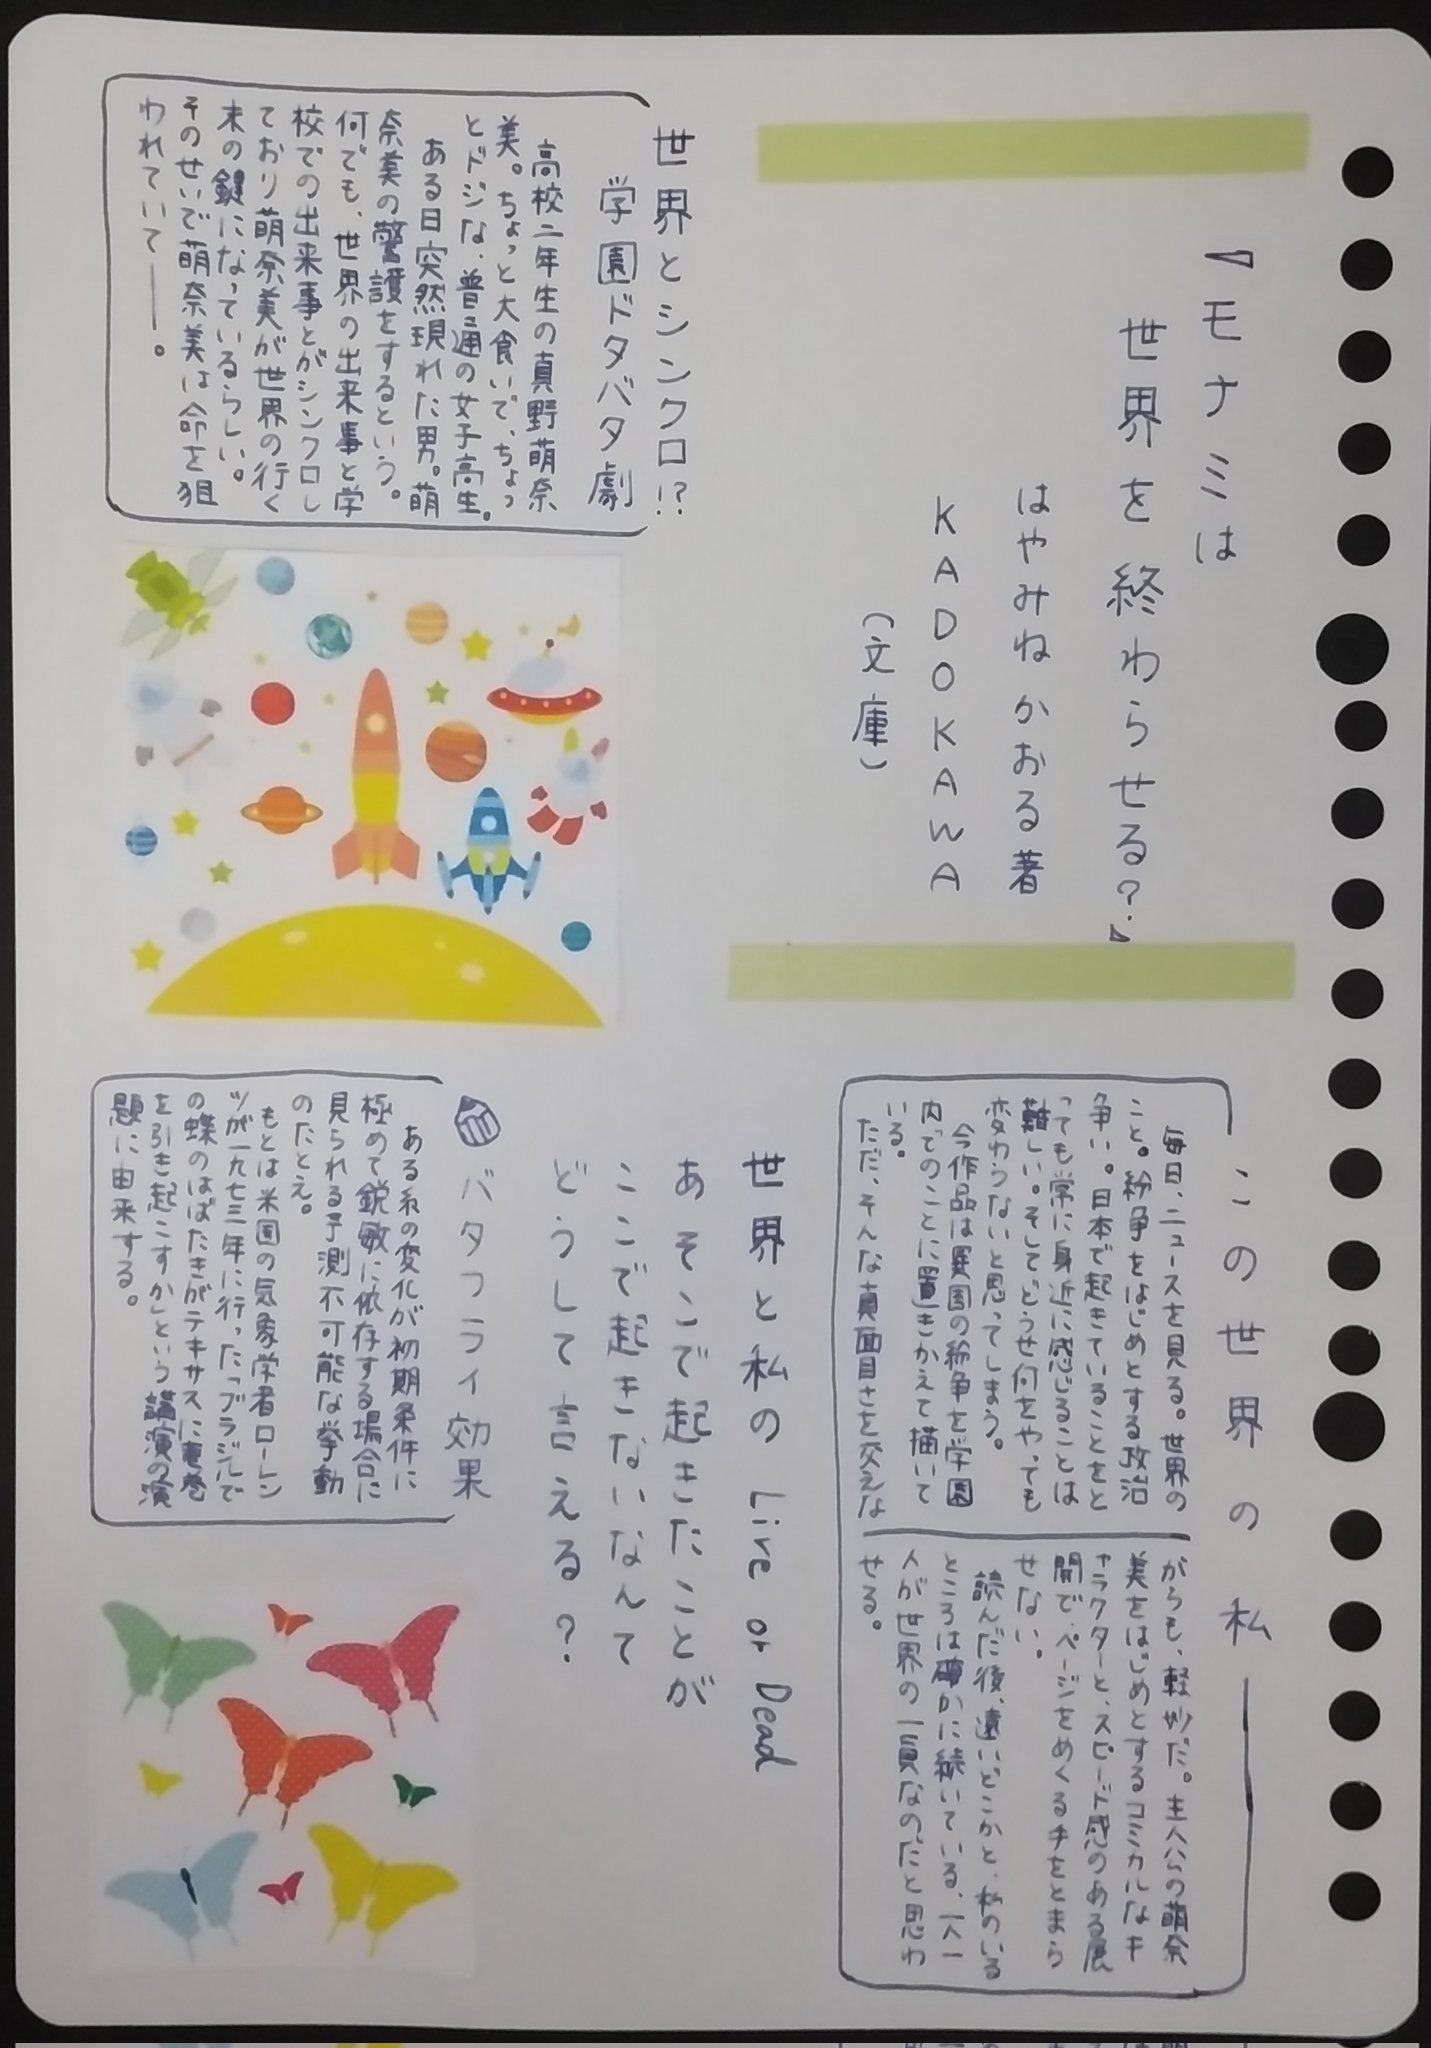 『モナミは
世界を終わらせる?』
はやみねかおる著
KADOKAWA
(文庫)
世界とシンクロ!?
学園ドタバタ劇
高校二年生の真野萌奈
美。ちょっと大食いで、ちょっ
とドジな、普通の女子高生。
ある日突然現れた男。萌
奈美の警護をするという。
何でも、世界の出来事と学
校での出来事とがシンクロし
ており萌奈美が世界の行く
末の鍵になっているらしい。
そのせいで萌奈美は命を狙
われていて――。
この世界の私
毎日、ニュースを見る。世界の
こと。紛争をはじめとする政治
争い。日本で起きていることをと
っても常に身近に感じることは
難しい。そしてどうせ何をやっても
変わらないと思ってしまう。
今作品は異国の紛争を学園
内でのことに置きかえて描いて
いる。
ただ、そんな真面目さを交えな
がらも、軽妙だ。主人公の萌奈
美をはじめとするコミカルなキ
ャラクターと、スピード感のある展
開で、ページをめくる手をとまら
せない。
読んだ後、遠いどこかと、私のいる
ところは確かに続いている、一人一
人が世界の一員なのだと思わ
せる。
世界と私の Live or Dead
あそこで起きたことが
ここで起きないなんて
どうして言える?
バタフライ効果
ある系の変化が初期条件に
極めて鋭敏に依存する場合に
見られる予測不可能な挙動
のたとえ。
もとは米国の気象学者ローレン
ツが一九七三年に行った「ブラジルで
の蝶のはばたきがテキサスに竜巻
を引き起こすか」という講演の演
題に由来する。